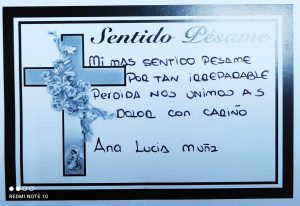 Sentido Pésame
Mi mas sentido pesame
por tan irreparable
perdida nos unimos a s
dolor con cariño
Ana Lucia Muñz
REDMI NOTE 10